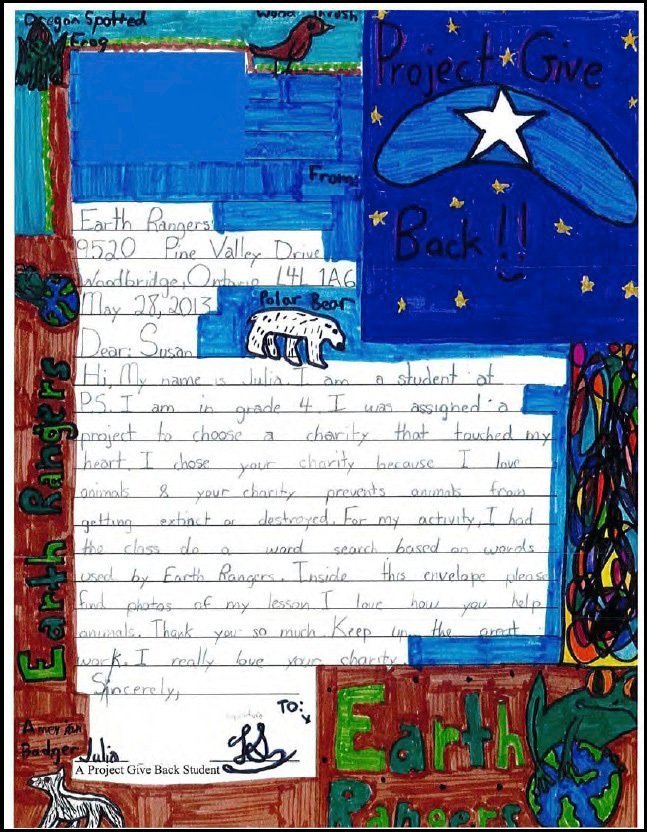 Oregon Spotted
Frog
Wood Thrush
Project Give
Back!!
From:
Earth Rangers
9520 Pine Valley Drive
Woodbridge, Ontario L4L 1A6
May 28, 2013
Polar Bear
Dear: Susan
Hi, My name is Julia. I am a student at
P.S. I am in grade 4. I was assigned a
project to choose a charity that touched my
heart. I chose your charity because I love
animals & your charity prevents animals from
getting extinct or destroyed. For my activity, I had
the class do a word search based on words
used by Earth Rangers. Inside this envelope please
find photos of my lesson. I love how you help
animals. Thank you so much. Keep up the great
work. I really love your charity.
Sincerely,
TO:
Julia
A Project Give Back Student
Earth Rangers
American
Badger
Earth
Rangers